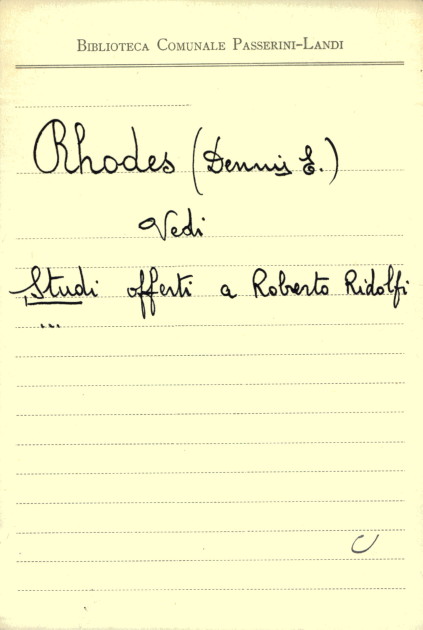 BIBLIOTECA COMUNALE PASSERINI-LANDI
Rhodes (Dennis E.)
Vedi
Studi offerti a Roberto Ridolfi
...
C